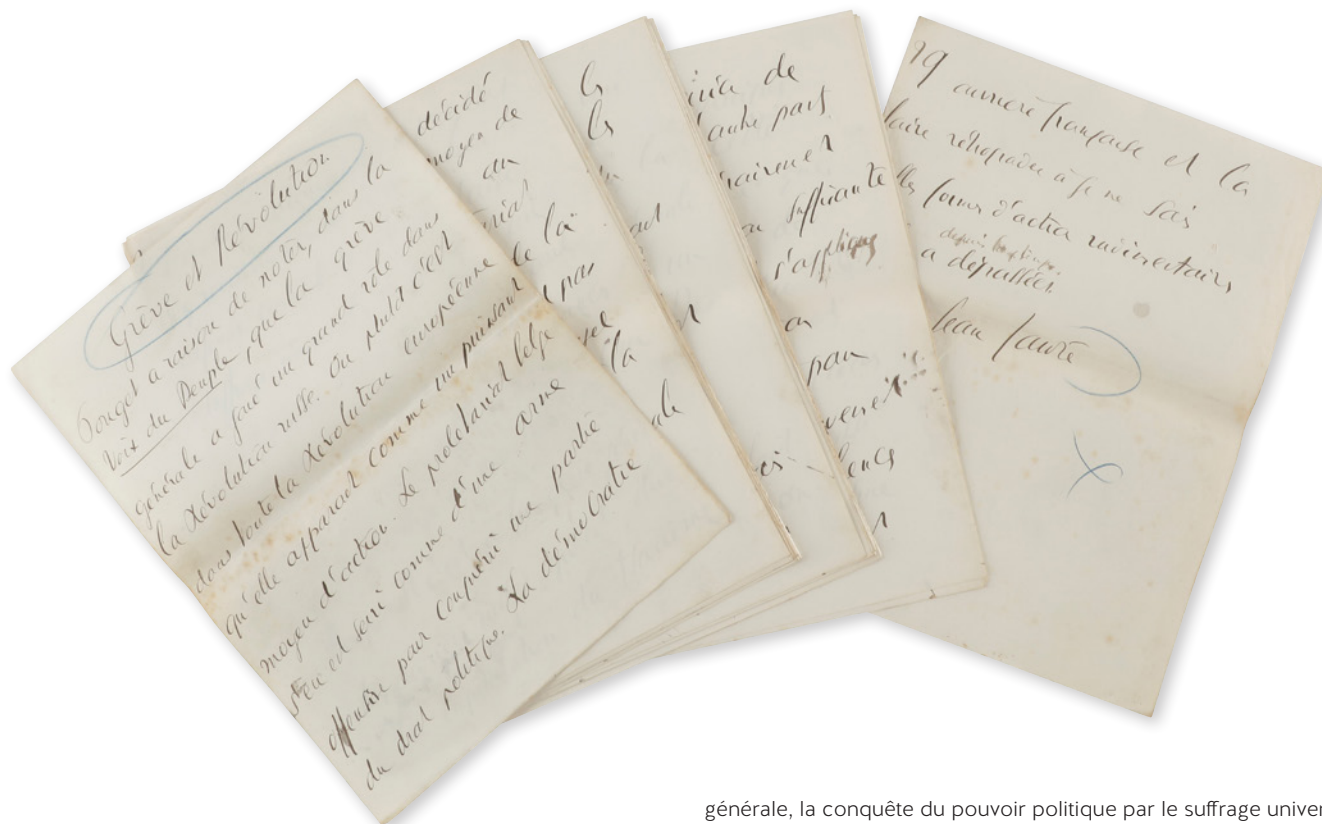 Grève et Révolution.
Pouget a raison de noter, dans la
Voix du Peuple, que la grève
générale a joué un grand rôle dans
la Révolution russe. Ou plutôt c'est
dans toute la Révolution européenne
qu'elle apparaît comme un puissant
moyen d'action. Le prolétariat belge
s'en est servi comme d'une arme
offensive pour conquérir une partie
du droit politique. La démocratie
décidé
moyen de
au
de la
pas
la
ls
ls
de
l'autre part
suffisante
s'applique
on
29
ouvrière française et la
rétrograder à je ne sais
formes d'action rudimentaires
depuis longtemps
a dépassées.
Jean Jaurès
générale, la conquête du pouvoir politique par le suffrage univer